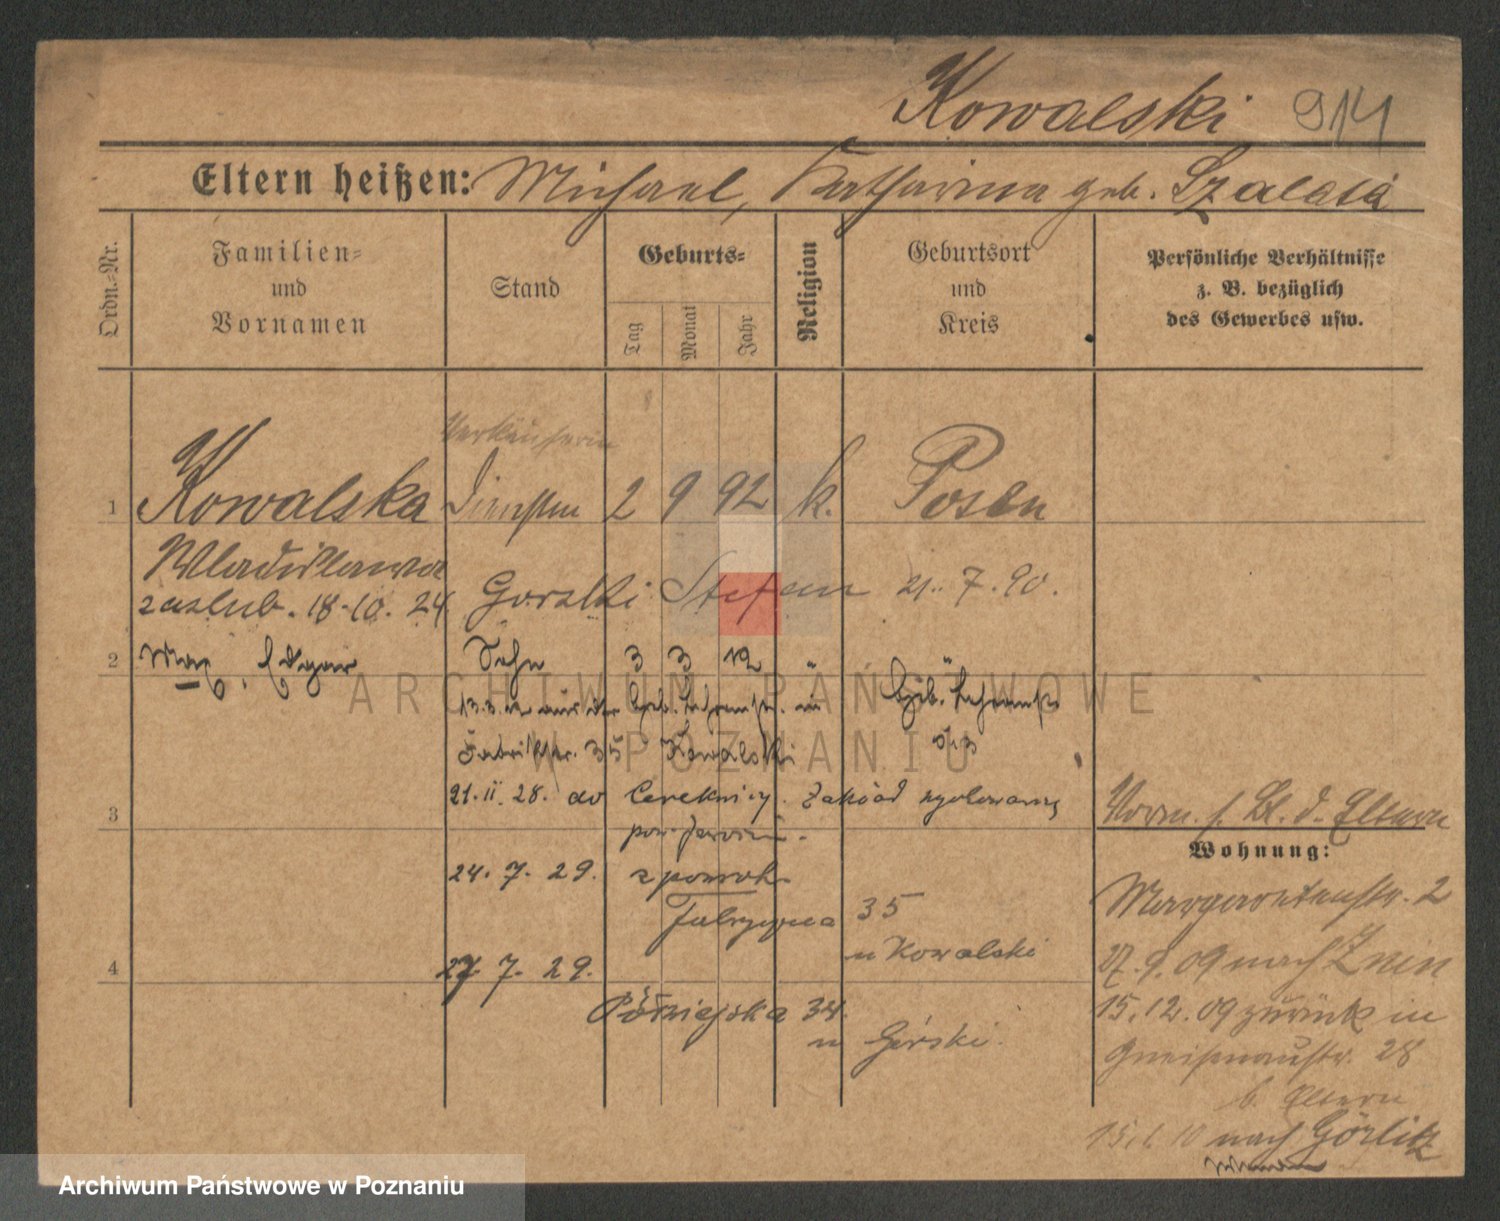 Kowalski 914
Eltern heißen: Michael, Katharina geb. Szalata
Ordn.-Nr.
Familien-
und
Vornamen
Stand
Geburts-
Tag
Monat
Jahr
Religion
Geburtsort
und
Kreis
Persönliche Verhältnisse
z. B. bezüglich
des Gewerbes usw.
Verkäuferin
1 Kowalska Dienstm 2 9 92 k. Posen
Wladislawa
zaślub. 18-10. 24 Goralski Stefan 21. 7. 90.
2 Max, Edgar Sohn 3 3 12 "
13.3.12 aus der Geb. Lehranst. in Geb. Lehranst.
Fabrikstr. 35 Kowalski
21. II. 28. do Cerekwicy. Zakład
3 pow. Jarocin.
Vorm. s. Bl. d. Eltern
Wohnung:
24. 7. 29. z powrot.
Fabryczna 35
u Kowalski
4 27 7. 29.
Półwiejska 34.
u Górski.
Margaretenstr. 2
27. 9. 09 nach Znin
15. 12. 09 zurück in
Gneisenaustr. 28
b. Eltern
15. 1. 10 nach Görlitz
ARCHIWUM PAŃSTWOWE
W POZNANIU
Archiwum Państwowe w Poznaniu